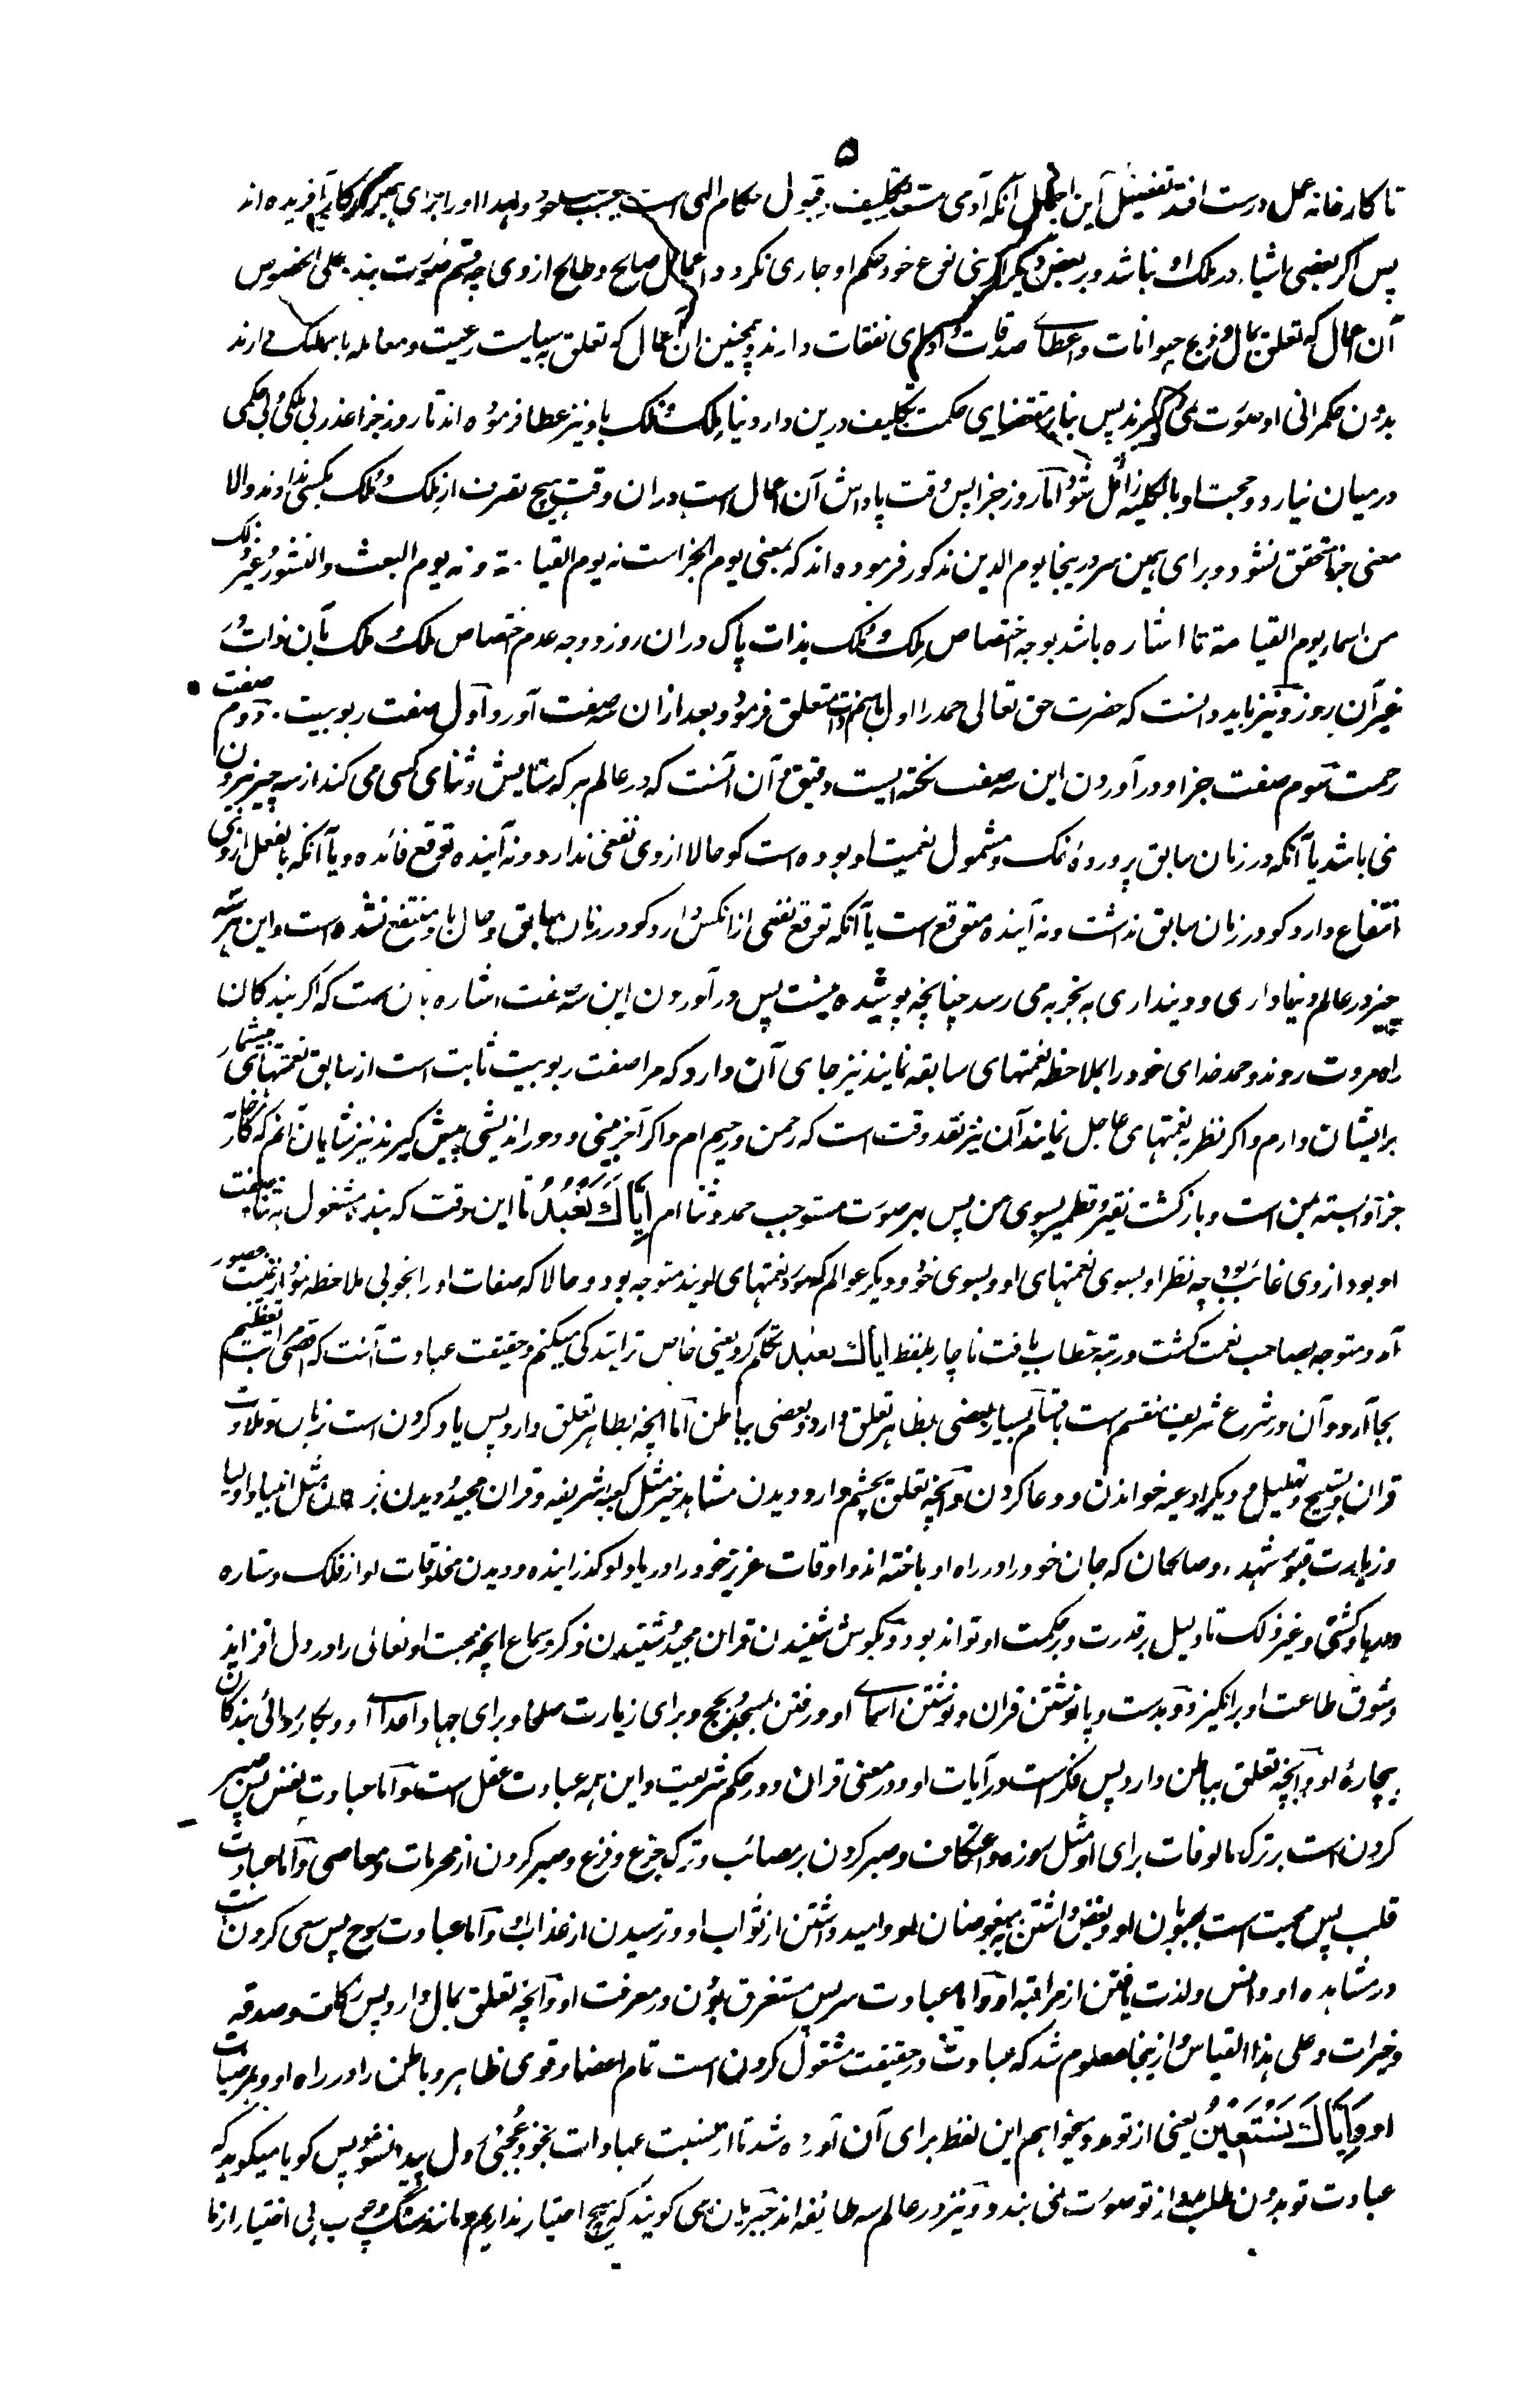 ۵
تا کارخانه عمل درست افتد تفصیل این اجمال آنکه آدمی مستعد تکلیف و قبول احکام الهی است بحسب خود ولهذا او را برای همین کار آفریده اند
پس اگر بعضی اشیاء در ملک او نباشد و بر بعض دیگر از بنی نوع خود حکم او جاری نگردد اعمال صالح و طالح از وی چه قسم صورت بندد علی الخصوص
آن اعمال که تعلق بمال و ذبح حیوانات و اعطای صدقات و ادای نفقات دارند و همچنین آن اعمال که تعلق بسیاست رعیت و معامله با ممالک دارند
بدون حکمرانی او صورت نمی گیرند پس بنابر مقتضای حکمت تکلیف درین دار دنیا ملک و مُلک باو نیز عطا فرموده اند تا روز جزا عذر بی ملکی و بی حکمی
درمیان نیارد و حجت او بالکلیه زائل شود اما روز جزا پس وقت پاداش آن اعمال است دران وقت هیچ تصرف از ملک و مُلک بکسی ندادند والا
معنی جزا متحقق نشود و برای همین سر درینجا یوم الدین مذکور فرموده اند که بمعنی یوم الجزا است نه یوم القیامة و نه یوم البعث والنشور وغیر ذلک
من اسماء یوم القیامة تا اشاره باشد بوجه اختصاص ملک و مُلک بذات پاک دران روز و وجه عدم اختصاص ملک و ملک بآن ذات در
غیر آن روز و نیز باید دانست که حضرت حق تعالی حمد را اول باسم ذات متعلق فرمود و بعد ازان سه صفت آورد اول صفت ربوبیت دوم صفت
رحمت سوم صفت جزا و در آوردن این سه صفت نکته ایست دقیق و آن آنست که در عالم هر که ستایش و ثنای کسی می کند از سه چیز بیرون
نمی باشد یا آنکه در زمان سابق پرورده نمک و مشمول نعمت او بوده است گو حالا از وی نفعی ندارد و نه آینده توقع فائده و یا آنکه بالفعل از وی
انتفاع دارد گو در زمان سابق نداشت و نه آینده متوقع است یا آنکه توقع نفعی ازانکس دارد گو در زمان سابق و حال باو منتفع نشده است و این هر سه
چیز در عالم دنیاداری و دینداری به تجربه می رسد چنانچه پوشیده نیست پس در آوردن این سه صفت اشاره بآن است که اگر بندگان
راه مروت روند و حمد خدای خود را بملاحظه نعمتهای سابقه نمایند نیز جای آن دارد که مرا صفت ربوبیت ثابت است از سابق نعمتهای بیشمار
بر ایشان دارم و اگر نظر به نعمتهای عاجل نمایند آن نیز نقد وقت است که رحمن و رحیم ام و اگر آخربینی و دوراندیشی پیش گیرند نیز شایان آنم که کارخانه
جزا وابسته بمن است و بازگشت نقیر و قطمیر بسوی من پس بهر صورت مستوجب حمد و ثنا ام إِيَّاكَ نَعْبُدُ تا این وقت که بنده مشغول به ثنا و صفت
او بود از وی غائب بود چه نظر او بسوی نعمتهای او و بسوی خود و دیگر عوالم که مورد نعمتهای اویند متوجه بود و حالا که صفات او را بخوبی ملاحظه نمود از غیبت بحضور
آمد و متوجه بصاحب نعمت گشت و رتبه خطاب یافت ناچار بلفظ ایاک نعبد تکلم کرد یعنی خاص ترا بندگی میکنیم و حقیقت عبادت آنست که اقصی مراتب تعظیم
بجا آرد و آن در شرع شریف منقسم است باقسام بسیار بعضی بظاهر تعلق دارد و بعضی بباطن اما آنچه بظاهر تعلق دارد پس یاد کردن است بزبان و تلاوت
قران و تسبیح و تهلیل و دیگر ادعیه خواندن و دعا کردن و آنچه تعلق بچشم دارد دیدن مشاهد خیر مثل کعبه شریفه و قران مجید و دیدن بزرگان مثل انبیا و اولیا
و زیارت قبور شهدا و صالحان که جان خود را در راه او باخته اند و اوقات عزیز خود را در یاد او گذرانیده و دیدن مخلوقات او از فلک و ستاره
و دریا و کشتی و غیر ذلک تا دلیل بر قدرت و بر حکمت او تواند بود و بگوش شنیدن قران مجید و شنیدن ذکر و سماع آنچه محبت او تعالی را در دل افزاید
و شوق طاعت او برانگیزد و بدست و پا نوشتن قران و نوشتن اسمای او و رفتن بمسجد و بحج و برای زیارت صلحا و برای جهاد اعدای او و بکار روائی بندگان
بیچاره او و آنچه تعلق بباطن دارد پس فکر است در آیات او و در معنی قران و در حکم شریعت و این همه عبادت عقل است و اما عبادت نفس پس صبر
کردن است بر ترک مالوفات برای او مثل روزه و اعتکاف و صبر کردن بر مصائب و ترک جزع و فزع و صبر کردن از محرمات و معاصی و اما عبادت
قلب پس محبت است بمحبوبان او و بغض داشتن به مبغوضان او و امید داشتن از ثواب او و ترسیدن از عذاب او و اما عبادت روح پس سعی کردن است
در مشاهده او و انس و لذت یافتن از مراقبه او و اما عبادت سر پس مستغرق بودن در معرفت او و آنچه تعلق بمال دارد پس زکات و صدقه
و خیرات و علی هذا القیاس و ازینجا معلوم شد که عبادت در حقیقت مشغول کردن است تمام اعضا و قوی ظاهر و باطن را در راه او و بمرضیات
او وَإِيَّاكَ نَسْتَعِينُ یعنی از تو مدد میخواهیم این لفظ برای آن آورده شد تا از نسبت عبادات بخود عُجبی در دل پیدا نشود پس گویا میگوید که
عبادت تو بدون طلب مدد از تو صورت نمی بندد و نیز در عالم سه طائفه اند جبریان می گویند که هیچ اختیار نداریم و مانند سنگ و چوب بی اختیار از ما